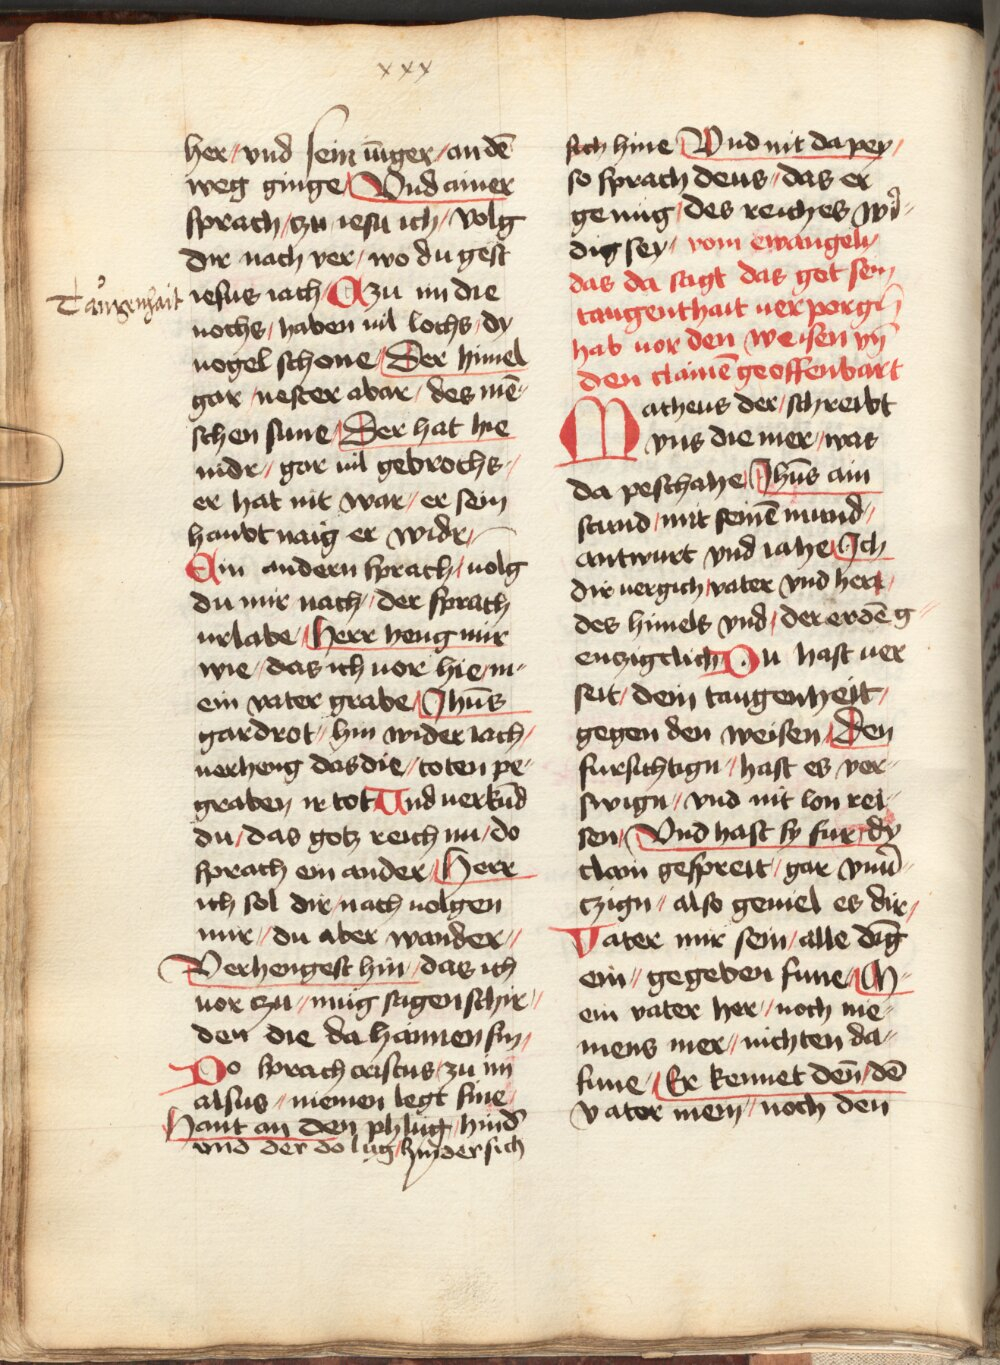 xxx
her / vnd sein iūger / an dē
weg ginge / Vnd ainer
sprach / zu iesu ich / volg
dir nach ver / wo du gest
Taugenhait
iesus iach / Azu im die
vochs / haben vil lochs / dy
vogel schone / Der himel
gar / nester abar / des mē-
schen sune / Der hat hie
nidr / gar vil gebrochs /
er hat nit war / er sein
haubt naig er widr /
Ain andern sprach / volg
du mir nach / der sprach
urlabe / Herr heng mir
wie / das ich vor hie / m-
ein vater grabe / Jhūs
gardrot / hin wider iach /
verheng das die / toten pe-
graben ir tot Und verkūd
du / das gotz reich nu / do
sprach ein ander / Herr
ich sol dir / nach volgen
mir / du aber wander /
Verhengest hin / das ich
vor zu / mug sagen schir /
den die da haimen sin /
Do sprach cristus / zu im
alsus / niemen legt sine
Hant an den phlug / hind
vnd der do lug / hinder sich
sich hine / Vnd nit da pey /
so sprach deus / das er
genug / des reiches wir-
dig sey / vom ewangeli /
das da sagt das got sein
taugenthait verporgē
hab vor den weisen vn
den clainē geoffenbart
Matheus der / schreibt
vns die mer / was
da peschahe / Jhūs ain
stund / mit seinē mund /
antwurt vnd iahe / Ich
dir vergich / vater vnd herr /
des himels vnd / der erdē g-
enzigclich / Du hast ver
seit / dein taugenheit /
gegen den weisen / Den
fursichtign / hast es ver-
swign / vnd nit lon rei-
sen / Vnd hast sy fur / dy
clain gespreit / gar vnū-
czign / also geviel es dir /
Vater mir sein / alle dīg
ein / gegeben sune / M-
ein vater her / noch nie-
mens mer / nichten da-
sune / Er kennet den / dē
vater mein / noch den